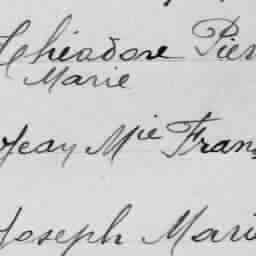 Théodore Pier
Marie
Jean Mie Fran
Joseph Mari